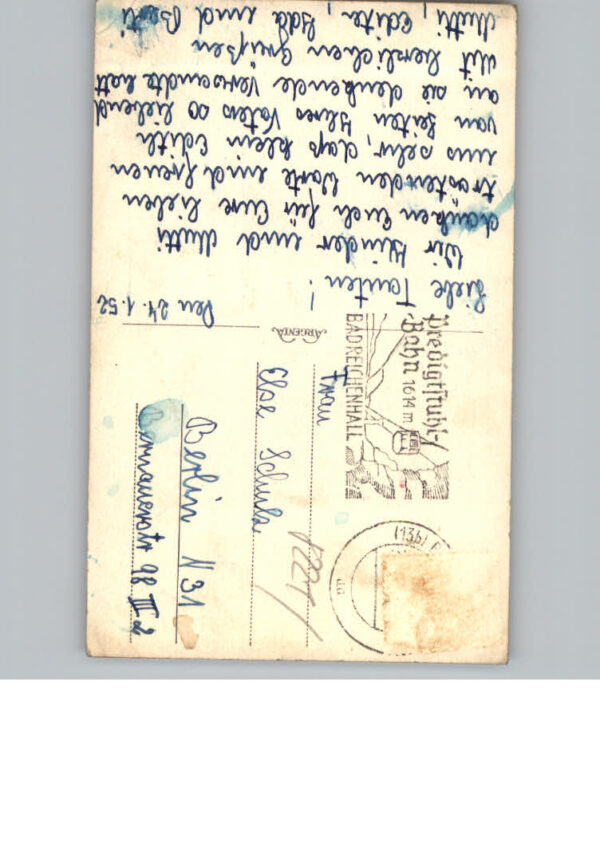 Den 24.1.52
Liebe Tanten!
Wir Kinder und Mutti
danken Euch für Eure lieben
tröstenden Worte und freuen
uns sehr, daß klein Edith
von Seiten Ihres Vaters so liebend
an sie denkende Verwandte hat
Mit herzlichen Grüßen
Mutti, Edith, und
ARGENTA
Predigtstuhl-
Bahn 1614 m
BAD REICHENHALL
(13b)
Frau
Else Schulz
Berlin N 31
98 III